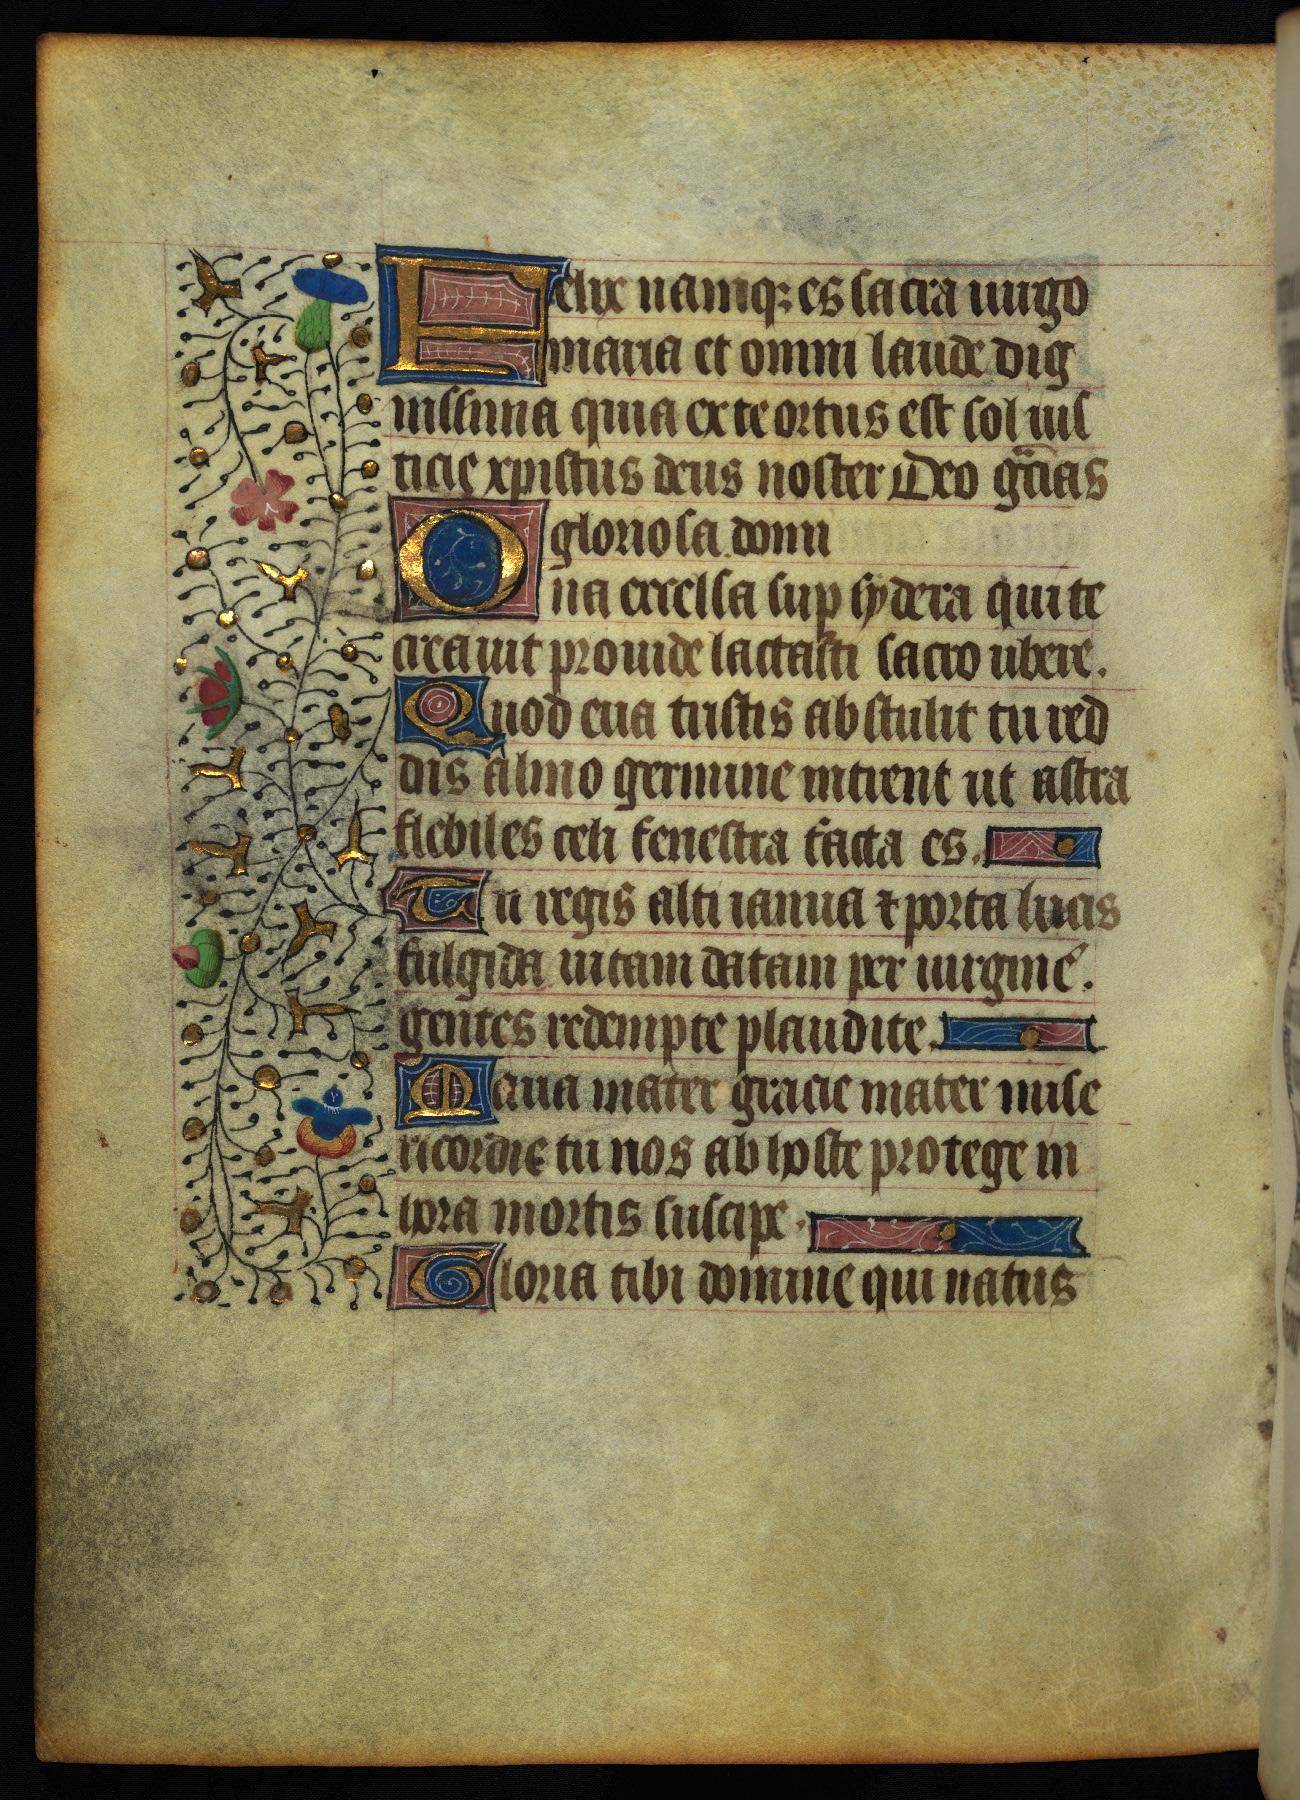 Felix namq; es sacra uirgo
maria et omni laude dig
nissima quia ex te ortus est sol ius
ticie xpistus deus noster Deo gr̄cias
O gloriosa domi
na excelsa sup sydera qui te
creauit prouide lactasti sacro ubere.
Quod eua tristis abstulit tu red
dis almo germine intrent ut astra
flebiles celi fenestra facta es.
Tu regis alti ianua ⁊ porta lucis
fulgida uitam datam per uirginē.
gentes redempte plaudite.
Maria mater gracie mater mise
ricordie tu nos ab hoste protege in
hora mortis suscipe.
Gloria tibi domine qui natus